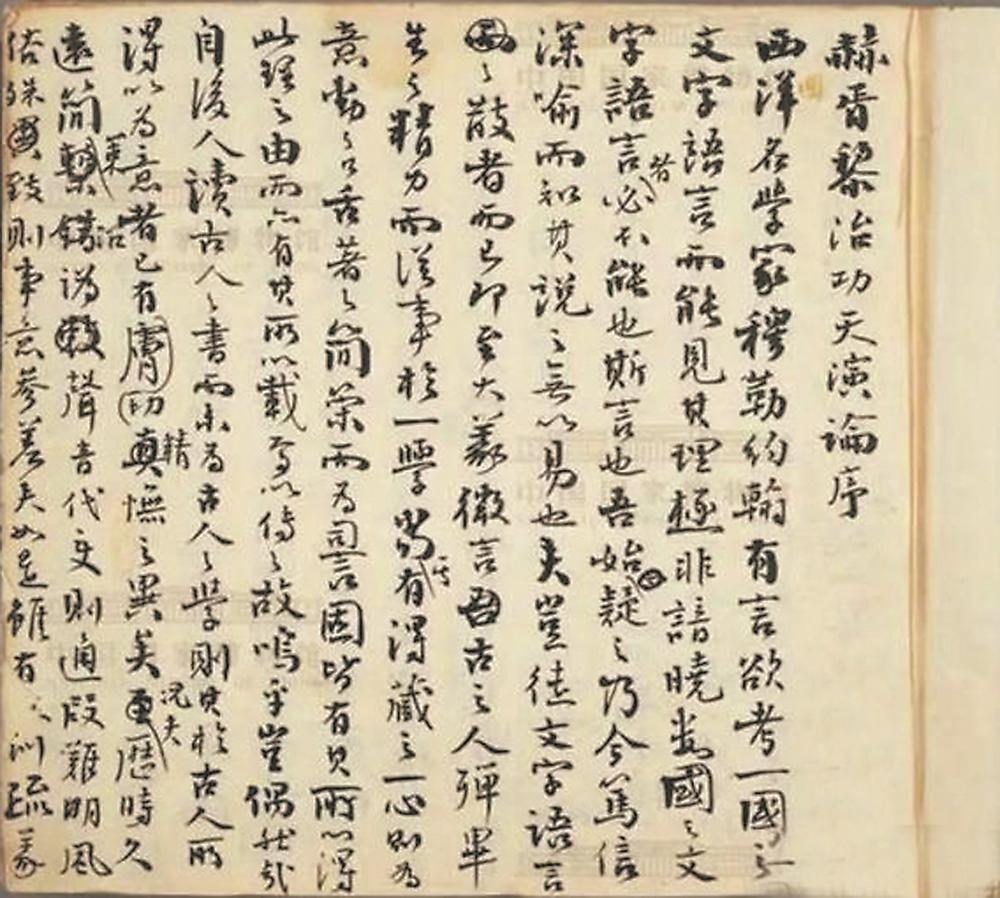 赫胥黎治功天演論序
西洋名學家穆勒約翰有言欲考一國之
文字語言而能見其理極非諳曉數國之文
字語言者必不能也斯言也吾始疑之乃今篤信
深喻而知其說之無以易也夫豈徒文字語言
之散者而已即至大義微言古之人殫畢
生之精力而從事於一學當其有得藏之一心則為
意動之口舌著之簡策而為詞言固皆有其所以得
此理之由而亦有其所以載焉以傳之故嗚乎豈偶然哉
自後人讀古人之書而未為古人之學則其於古人所
得以為意者已有膚功精憮之異矣況夫歷時久
遠簡策錯譌聲音代變則通叚難明風
俗殊致則事意參差夫如是雖有訓疏義